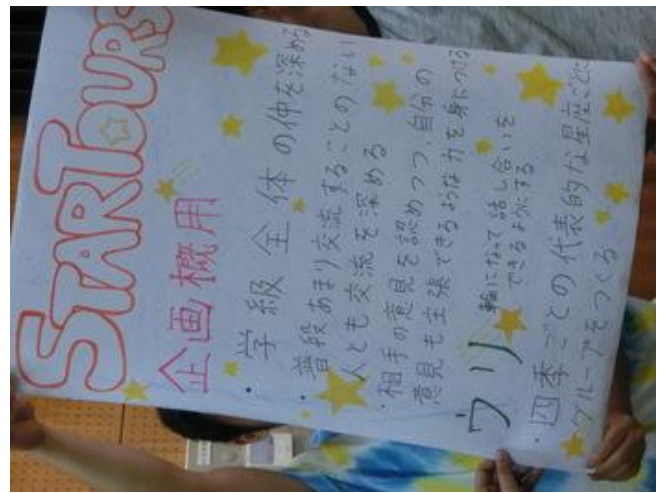 STAR TOURS
企画概用
・学級全体の仲を深める
・普段あまり交流することのない
人とも交流を深める
・相手の意見を認めつつ、自分の
意見も主張できるような力を身につける
ウリ
輪になって話し合いを
できるようにする
・四季ごとの代表的な星座ごとに
グループをつくる